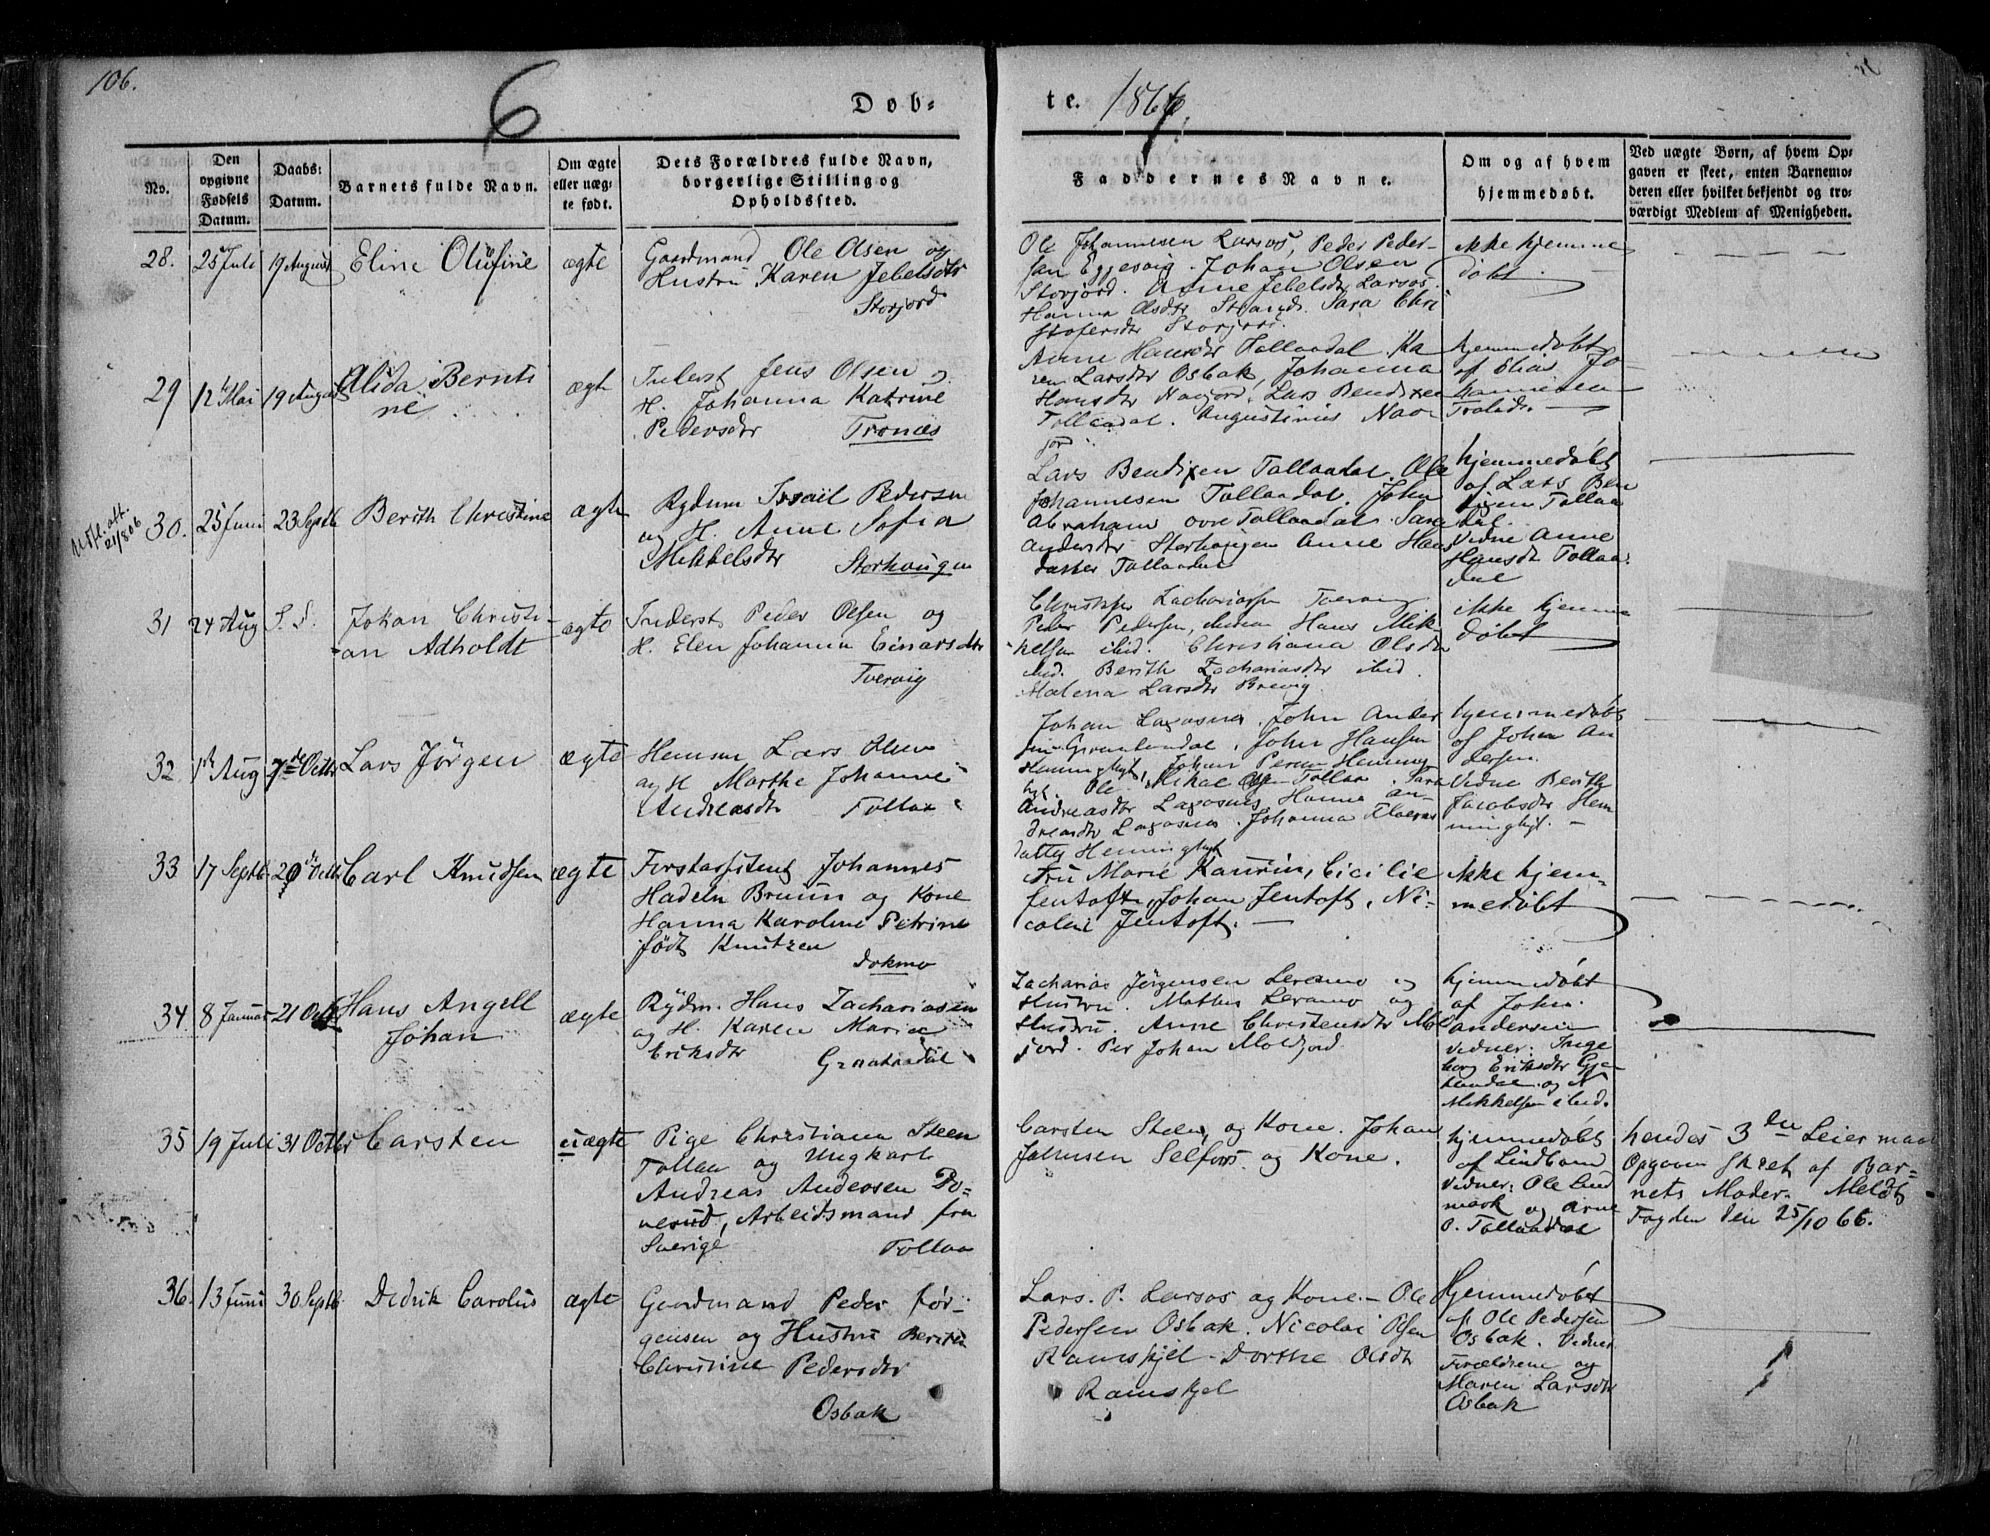 106.
6
Døb-
te. 1866.
No.
Den opgivne Fødsels Datum.
Daabs: Datum.
Barnets fulde Navn.
Om ægte eller uæg- te født.
Dets Forældres fulde Navn, borgerlige Stilling og Opholdssted.
Faddernes Navne.
Om og af hvem hjemmedøbt.
Ved uægte Børn, af hvem Op- gaven er skeet, enten Barnemo- deren eller hvilket bekjendt og tro- værdigt Medlem af Menigheden.
28. 25 Juli 19 August Eline Olufine ægte
Gaardmand Ole Olsen og
Hustru Karen Jebelsdtr
Storjord
Ole Johannesen Larsos, Peder Peder-
sen Eggesvig. Johan Olsen
Storjord. Anne Jebelsdtr Larsos.
Hanna Olsdtr Strand. Sara Chri
stofersdtr Storjord.
ikke hjemme
døbt
29 12 Mai 19 August Alida Bernti
ne
ægte
Inderst Jens Olsen og
H. Johanna Katrine
Pedersdtr Tronæs
Anne Hansdtr Tollaadal. Ka
ren Larsdtr Osbak, Johanna
Hansdtr Navjord. Lars Bendixen
Tollaadal. Augustinus Nav
jor
hjemmedøbt
af Elias Jo-
hannesen
30. 25 Juni 23 Septb Berith Christine ægte
Rydnm Israil Pedersen
og H. Anne Sofia
Mikkelsdtr Storhaugen
Lars Bendixen Tollaadal. Ole
Johannesen Tollaadal. John
Abraham øvre Tollaadal. Sara
Andersdtr Storhaugen Anne Hans
datter Tollaadal
hjemmedøbt
af Lars Ben
dixen Tollaa
dal.
Vidne Anne
Hansdt Tollaa
dal
31 24 Aug S. D. Johan Christi-
an Adholdt
ægte
Inderst Peder Olsen og
H. Elen Johanna Einarsdtr
Tvervig
Christofer Zachariassen Tvervig
Peder Pedersen, Hans Mik
kelsen ibid. Christiana Olsdtr
ibid. Berith Zachariasdtr ibid.
Malena Larsdtr Brevig.
ikke hjemme
døbt
32 1ste Aug 7de Octbr Lars Jørgen ægte
Lars Olsen
og H Marthe Johanne
Andreasdtr Tollaa
Johan Lagosnes. John Ander
sen Grønlandal, John Hansen
Hemminghyt, Johan
Ole Mikal Tollaa. Sara
Andreasdtr Lagosnes Hanne An
dreasdtr Lagosnes. Johanna
datter Hemminghyt
hjemmedøbt
af John An
dersen.
Vidne Berith
Jacobsdtr Hem
minghyt.
33 17 Septb 20 Octbr Carl Knudsen ægte
Forstassistent Johannes
Hadeln Bruun og Kone
Hanna Karoline Petrine
født Knutzen
Dokmo
Fru Marie Kaurin, Cicilie
Jentoft, Johan Jentoft, Ni-
colai Jentoft.
ikke hjem-
medøbt
34 8 Januar 21 Octbr Hans Angell
Johan
ægte
Rydm. Hans Zachariasen
og H. Karen Maria
Eriksdtr
Zacharias Jørgensen Leramo og
Hustru. Mathis Leramo og
Hustru. Anne Christensdtr Mol
jord. Per Johan Moldjord
hjemmedøbt
af John
Andersen
vidner. Inge
borg Eriksdtr
og N
Mikkelsen ibid.
35 19 Juli 31 Octbr Carsten uægte
Pige Christiana Steen
Tollaa og Ungkarl
Andreas Andersen Po-
nesud, Arbeidsmand fra
Sverige Tollaa
Carsten Steen, og Kone. Johan
Johnsen Selfors og Kone.
hjemmedøbt
af Lindbom
vidner: Ole Lind
mark og Arne
O. Tollaadal
hendes 3die Leiermaal
Opgaven skeet af Bar-
nets Moder. Meldt
Fogden den 25/10 66.
36. 13 Juni 30 Septb. Didrik Carolus ægte
Gaardmand Peder Jør-
gensen og Hustru Berith
Christine Pedersdtr
Osbak
Lars P. Larsos og Kone. Ole
Pedersen Osbak. Nicolai Olsen
Ramskjel. Dorthe Olsdtr
Ramskjel
Hjemmedøbt
af Ole Pedersen
Osbak. Vidner
Forældrene og
Maren Larsdtr
Osbak